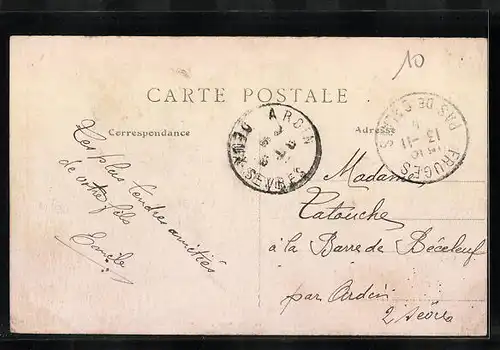 10
CARTE POSTALE
Correspondance
Adresse
ARDIN
DEUX-SEVRES
FRUGES
PAS DE CALAIS
13 -11
Les plus tendres amitiés
de votre fils
Madame
Tatouche
à la Barre de Béceleuf
par Ardin
2 Sèvres